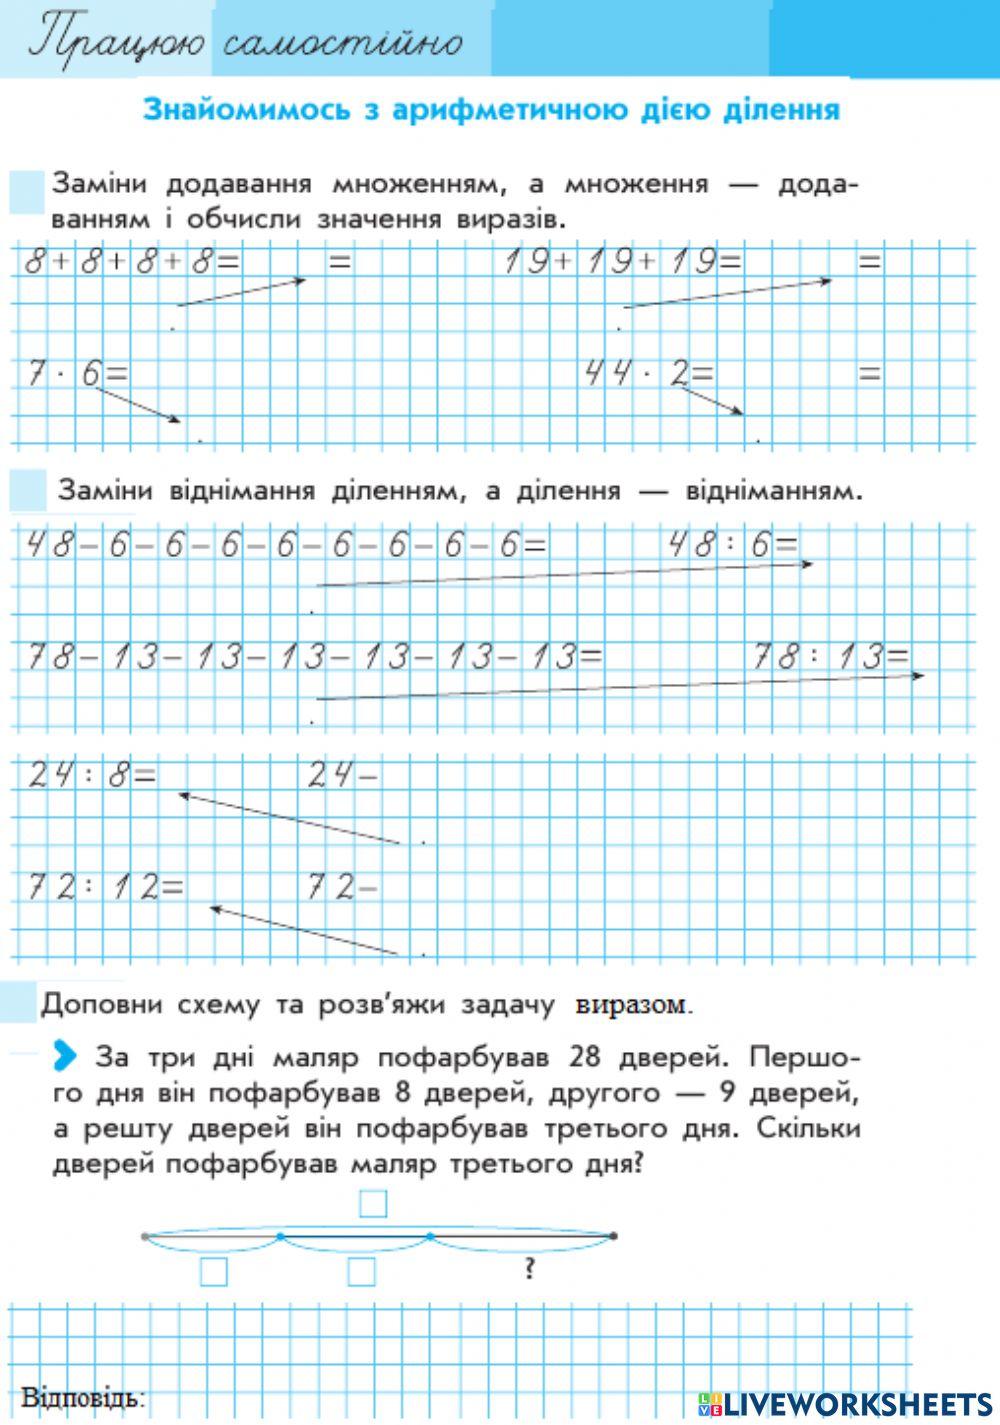 Працюю самостійно
Знайомимось з арифметичною дією ділення
Заміни додавання множенням, а множення — дода-
ванням і обчисли значення виразів.
8 + 8 + 8 + 8 = =
19 + 19 + 19 = =
7 · 6 =
44 · 2 = =
Заміни віднімання діленням, а ділення — відніманням.
48 – 6 – 6 – 6 – 6 – 6 – 6 – 6 – 6 = 48 : 6 =
78 – 13 – 13 – 13 – 13 – 13 – 13 = 78 : 13 =
24 : 8 = 24 –
72 : 12 = 72 –
Доповни схему та розв’яжи задачу виразом.
За три дні маляр пофарбував 28 дверей. Першо-
го дня він пофарбував 8 дверей, другого — 9 дверей,
а решту дверей він пофарбував третього дня. Скільки
дверей пофарбував маляр третього дня?
?
Відповідь:
LIVE LIVEWORKSHEETS